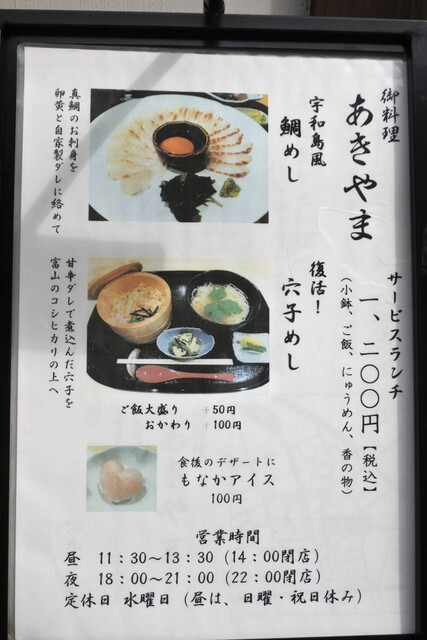 御料理
あきやま
サービスランチ
一、二〇〇円【税込】
(小鉢、ご飯、にゅうめん、香の物)
宇和島風
鯛めし
真鯛のお刺身を
卵黄と自家製ダレに絡めて
復活!
穴子めし
甘辛ダレで煮込んだ穴子を
富山のコシヒカリの上へ
ご飯大盛り +50円
おかわり +100円
食後のデザートに
もなかアイス
100円
営業時間
昼 11:30～13:30(14:00閉店)
夜 18:00～21:00(22:00閉店)
定休日 水曜日(昼は、日曜・祝日休み)